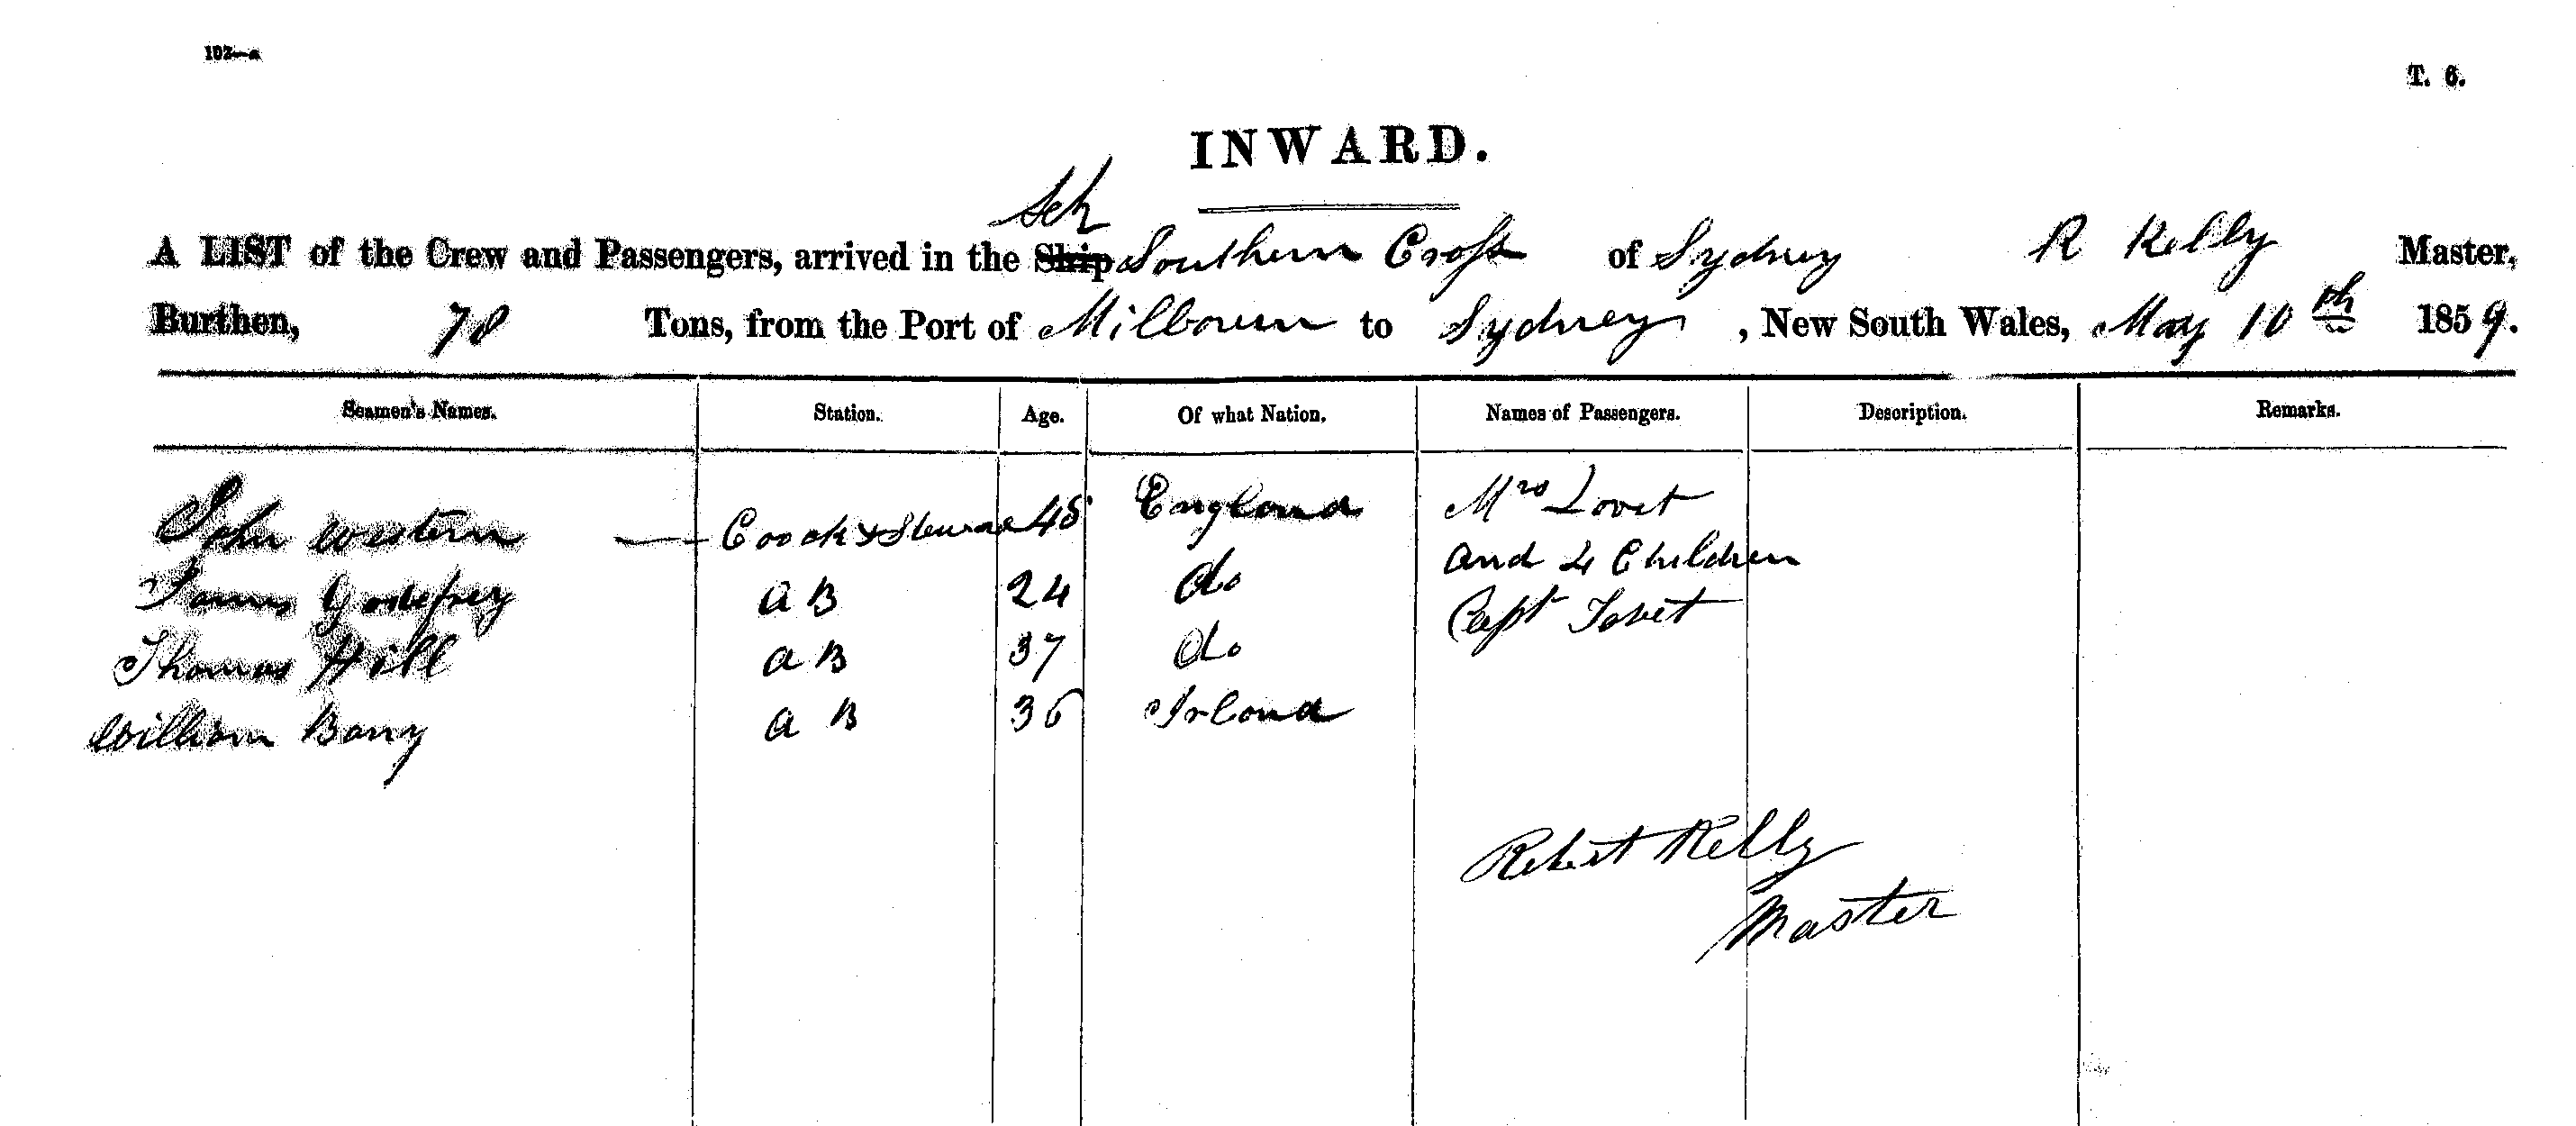 102—a
T. 6.
INWARD.
Sch
A LIST of the Crew and Passengers, arrived in the Ship Southern Cross of Sydney R Kelly Master,
Burthen, 78 Tons, from the Port of Milbourn to Sydney, New South Wales, May 10th 1859.
Seamen's Names. Station. Age. Of what Nation. Names of Passengers. Description. Remarks.
John Western — Coock & 48 England Mrs Lovet
and 4 Children
James Godfrey A B 24 do Capt
Thomas Hill A B 37 do
William Barry A B 36 Irland
Robert Kelly
Master